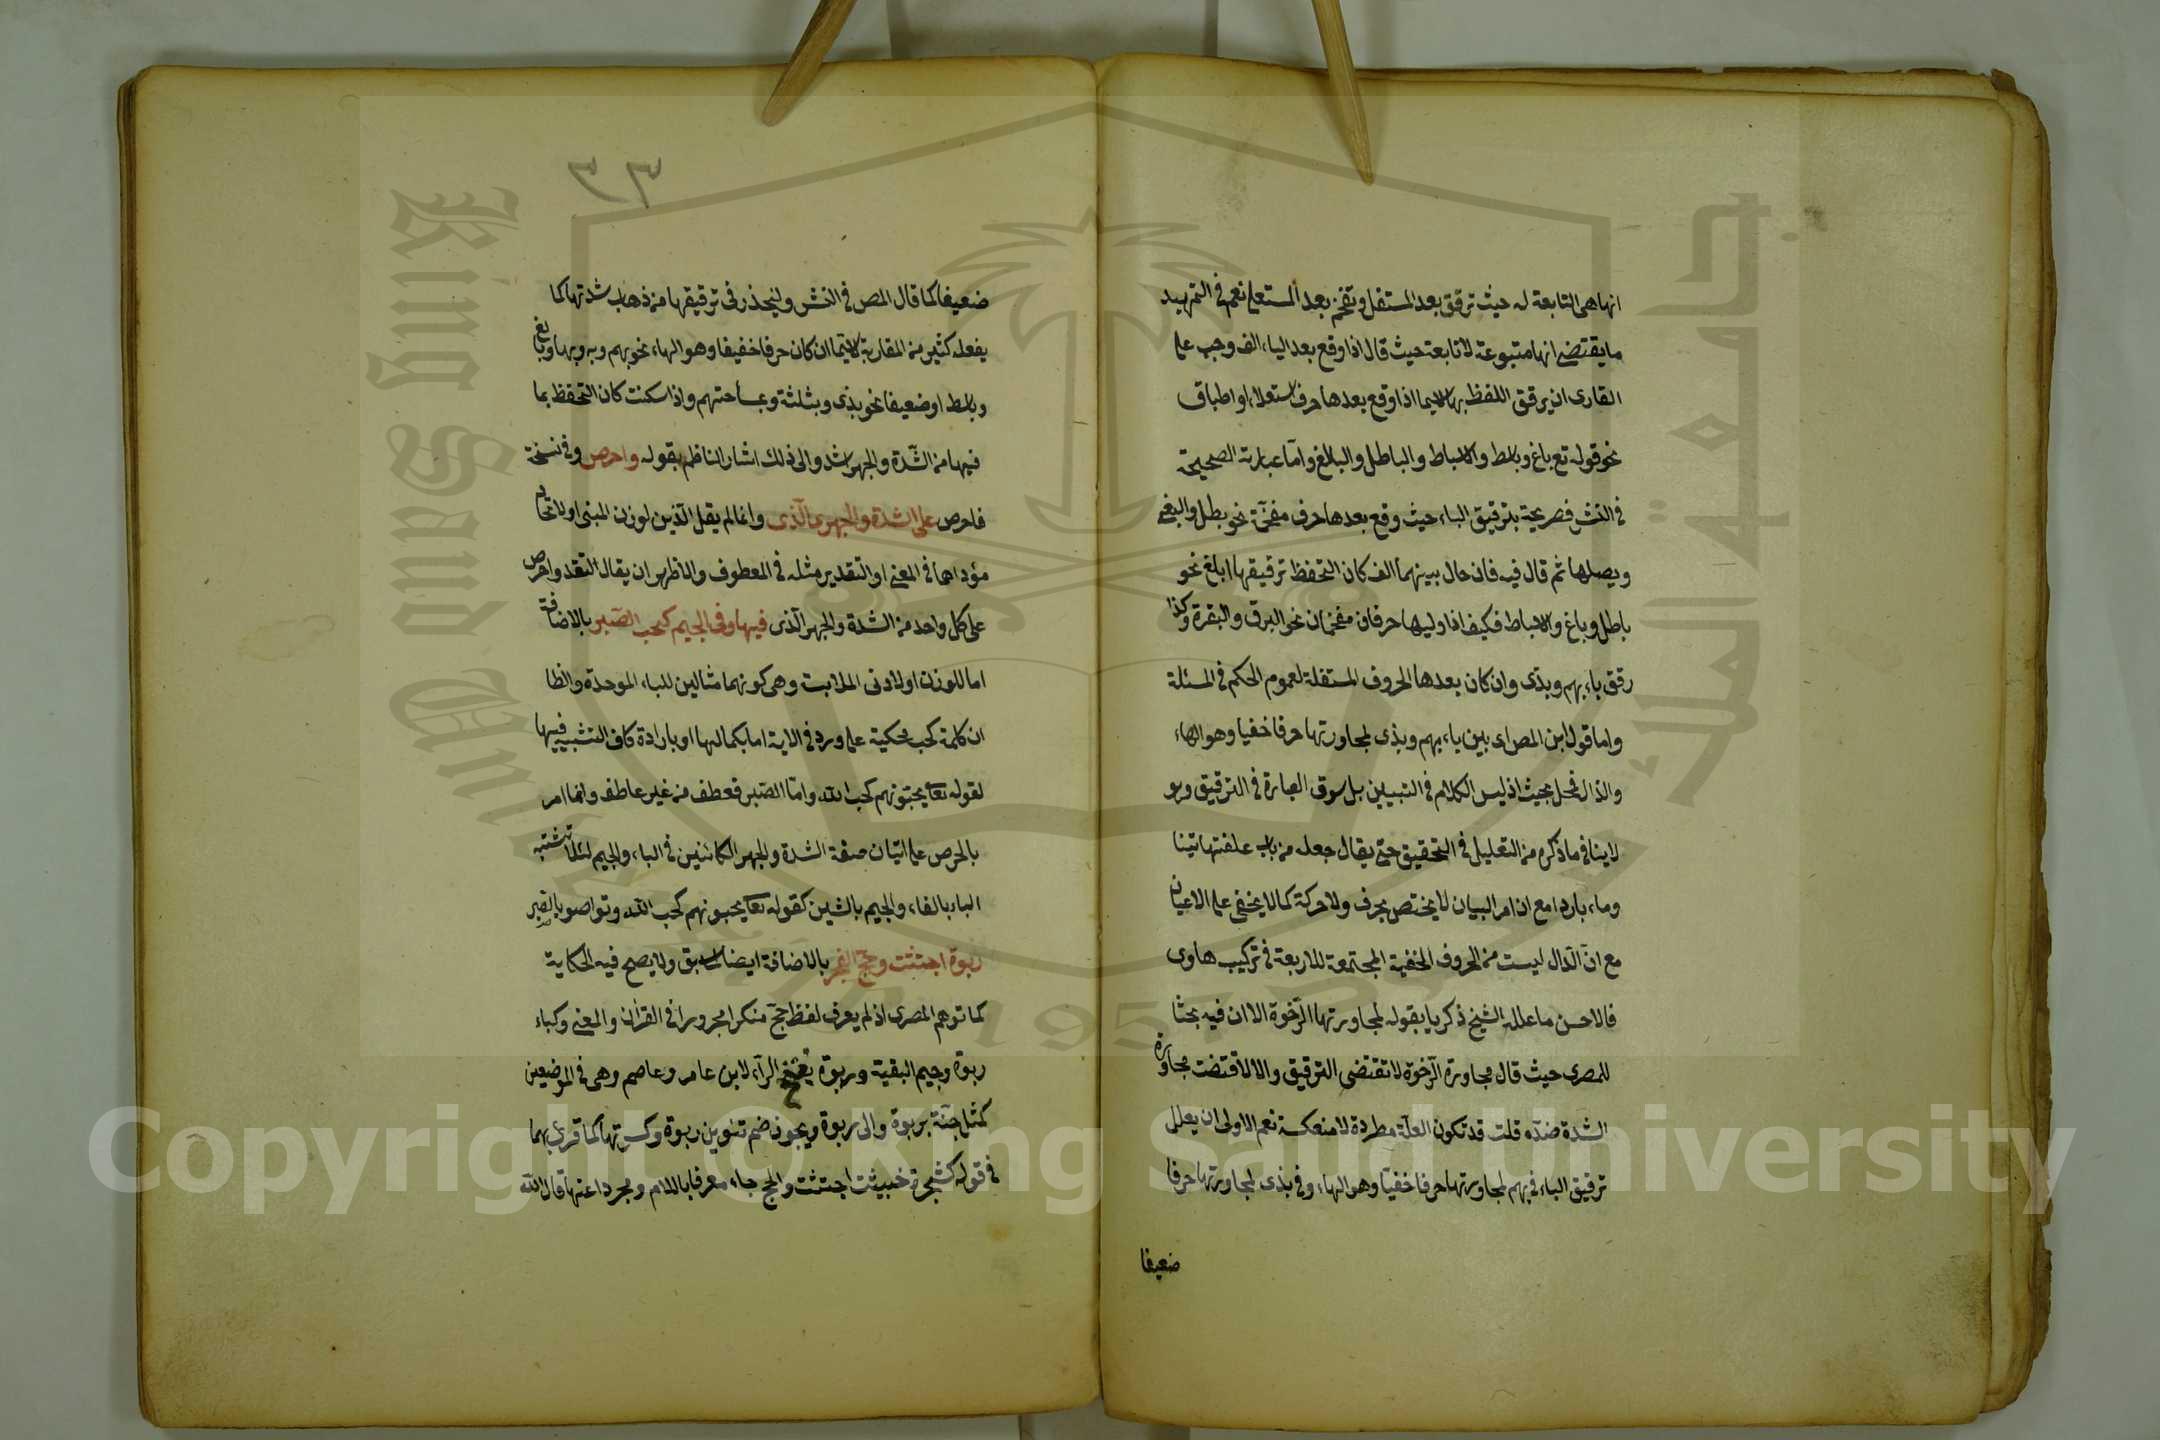 انها هى التابعة له حيث ترقق بعد المستفل وتفخم بعد المستعلى نعم فى التمهيد
ما يقتضى انها متبوعة لا تابعة حيث قال اذا وقع بعد الباء الف وجب على
القارى ان يرقق اللفظ بها لا سيما اذا وقع بعدها حرف استعلاء او اطباق
نحو قوله تع باغ وباسط والاسباط والباطل والبلاغ وامّا عبارته الصحيحة
فى النشر فصريحة بترقيق الباء حيث وقع بعدها حرف مفخّة نحو بطل والبغى
ويصلها ثم قال فيه فان حال بينهما الف كان التحفظ ترقيقها ابلغ نحو
باطل وباغ والاسباط فكيف اذا وليها حرفان مفخمان نحو البرق والبقرة وكذا
رقق باء بهم وبذى وان كان بعدها الحروف المستفلة لعموم الحكم فى المسئلة
واما قول ابن المص اى بين باء بهم وبذى لمجاورتها حرفا خفيا وهو الهاء
والذال فمحل بحيث اذ ليس الكلام فى التبيين بل سوق العبارة فى الترقيق وهو
لا ينافى ما ذكره من التعليل فى التحقيق حتى يقال جعله من باب علفتها تبنا
وماء باردا مع ان امر البيان لا يختص بحرف ولا حركة كما لا يخفى على الاعيان
مع انّ الذال ليست من الحروف الخفية المجتمعة للاربعة فى تركيب هاوى
فالاحسن ما علله الشيخ ذكريا بقوله لمجاورتها الرّخوة الا ان فيه بحثا
للمصرى حيث قال مجاورة الرّخوة لا تقتضى الترقيق والا لاقتضت مجاورة
الشدة ضدّه قلت قد تكون العلّة مطردة لا منعكسة نعم الاولى ان يعلل
ترقيق الباء فى بهم لمجاورتها حرفا خفيّا وهو الهاء وفى بذى لمجاورتها حرفا
ضعيفا
٣٣
ضعيفا كما قال المص فى النشر وليحذر فى ترقيقها من ذهاب شدتها كما
يفعله كثير من المغاربة لا سيما ان كان حرفا خفيفا وهو الهاء نحو بهم وبه وبها وباغ
وباسط او ضعيفا نحو بذى وبثلثة وبساحتهم واذا سكنت كان التحفظ بما
فيها من الشّدة والجهر اشد والى ذلك اشار الناظم بقوله واحرص وفى نسخة
فاحرص على الشدّة والجهر الّذى وانما لم يقل الّذين لوزن المبنى او لاتحاد
مؤداهما فى المعنى او التقدير مثله فى المعطوف والاظهر ان يقال التقد واحرص
على كل واحد من الشدة والجهر الّذى فيها وفى الجيم كحب الصّبر بالاضافة
اما للوزن او لادنى الملابست وهى كونهما مثالين للباء الموحدة والظا
ان كلمة كحب محكية على ورد فى الاية اما بكمالها او بارادة كاف التشبيه فيها
لقوله تعا يحبّونهم كحب اللّه وامّا الصّبر فعطف من غير عاطف وانما امر
بالحرص على اتيان صفة الشدة والجهر الكائنين فى الباء والجيم لئلّا تشتبه
الباء بالفاء والجيم بالشين كقوله تعا يحبونهم كحب اللّه وتواصوا بالصّبر
ربوة اجتثت وحجّ الفجر بالاضافة ايضا لما سبق ولا يصح فيه الحكاية
كما توهم المصرى اذ لم يعرف لفظ حجّ منكرا مجرورا فى القرآن والمعنى وكباء
ربوة وجيم البقية وربوة بفتح الرآء لابن عامر وعاصم وهى فى الموضعين
كمثل جنّة بربوة والى ربوة ويجوز ضم تنوين ربوة وكسرتها كما قرئ بهما
فى قوله كشجرة خبيثت اجتثت والحج جاء معرفا باللام ومجردا عنها قال اللّه